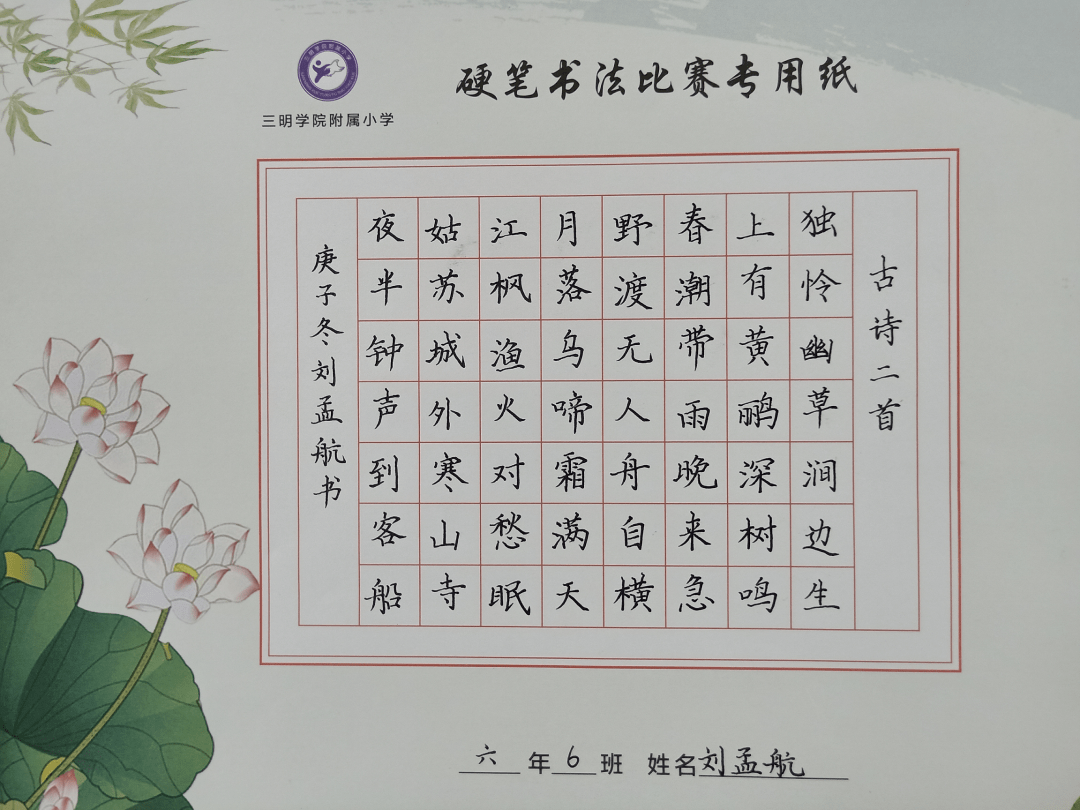 三明学院附属小学
硬笔书法比赛专用纸
古诗二首
独怜幽草涧边生
上有黄鹂深树鸣
春潮带雨晚来急
野渡无人舟自横
月落乌啼霜满天
江枫渔火对愁眠
姑苏城外寒山寺
夜半钟声到客船
庚子冬刘孟航书
六年6班 姓名刘孟航